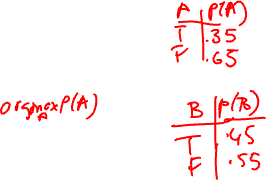 A P(A)
T .35
F .65
argmax P(A)
A
B P(B)
T .45
F .55